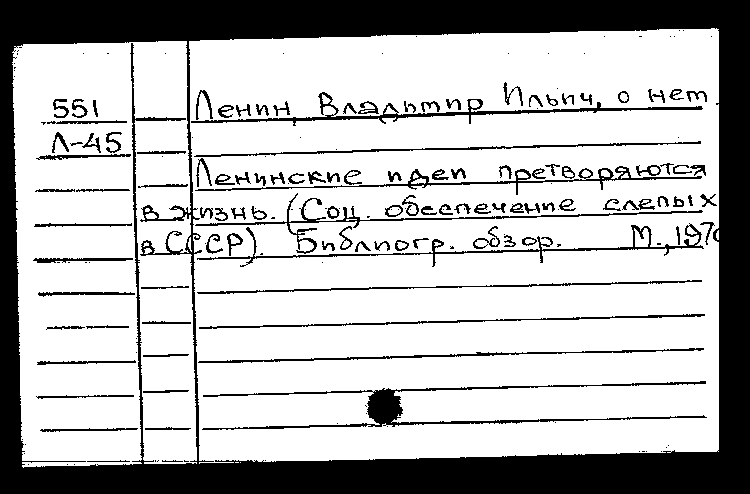 551 Ленин, Владимир Ильич, о нем.
Л-45
Ленинские идеи претворяются
в жизнь. (Соц. обеспечение слепых
в СССР). Библиогр. обзор. М., 1970